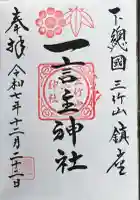 下總國三竹山鎮座
一言主神社
奉拝
令和七年十二月二十二日